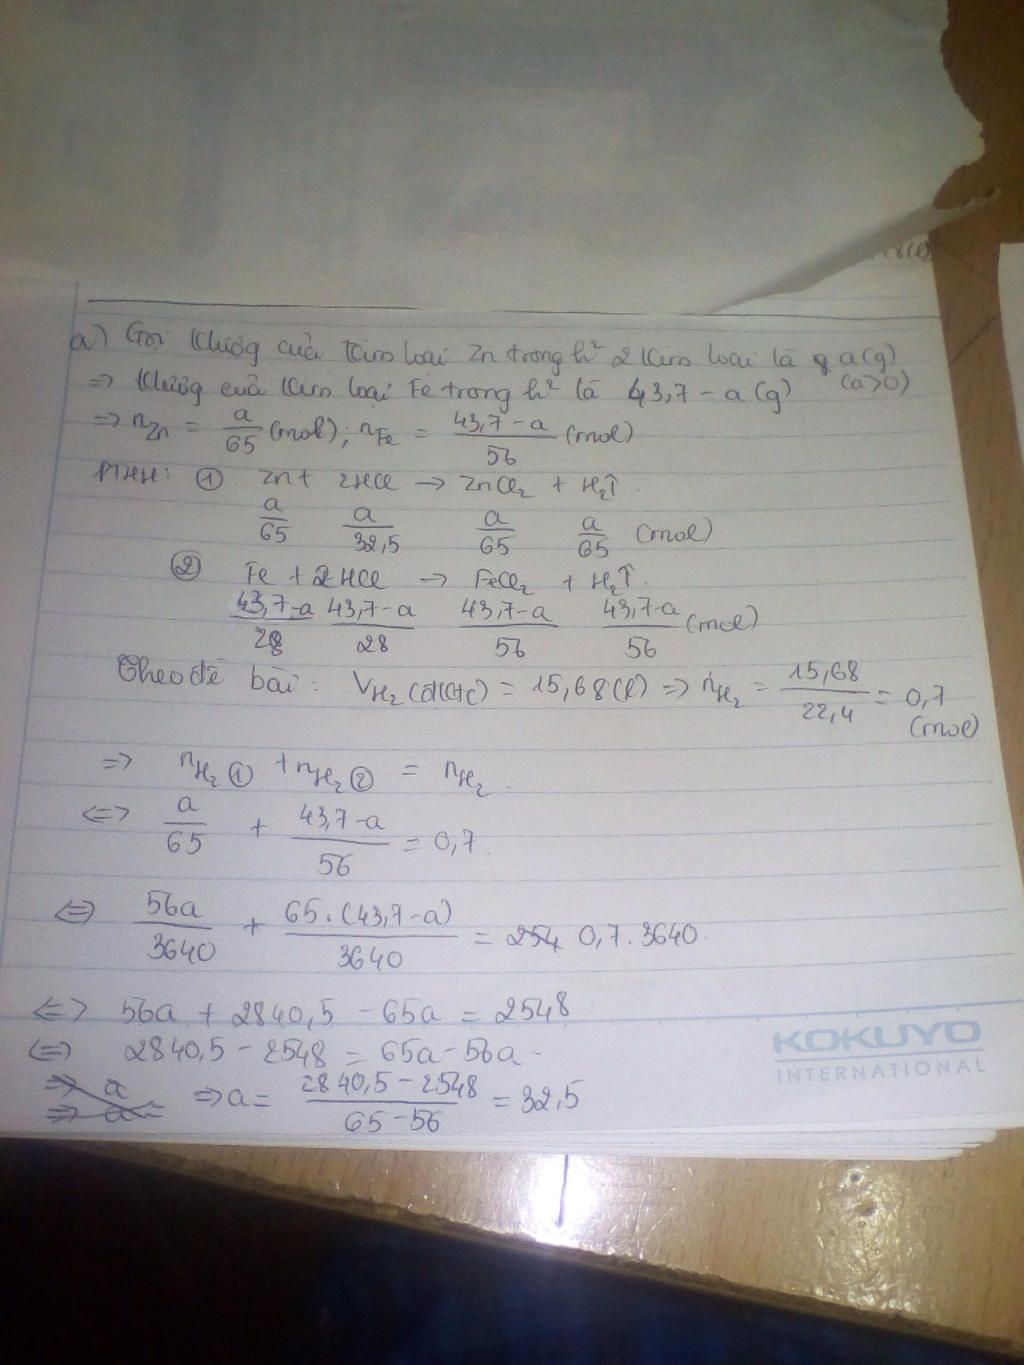 8(l)
a) Gọi klượg của kim loại Zn trong h² 2 kim loại là a(g)
(a>0)
=> klượg của kim loại Fe trong h² là 43,7 - a (g)
=> nZn = a/65 (mol); nFe = 43,7-a/56 (mol)
PTHH: ① Zn + 2HCl → ZnCl₂ + H₂↑
a/65 a/32,5 a/65 a/65 (mol)
② Fe + 2HCl → FeCl₂ + H₂↑.
43,7-a/28 43,7-a/28 43,7-a/56 43,7-a/56 (mol)
Theo đề bài: VH₂(đktc) = 15,68(l) => nH₂ = 15,68/22,4 = 0,7
(mol)
=> nH₂① + nH₂② = nH₂.
<=> a/65 + 43,7-a/56 = 0,7.
<=> 56a/3640 + 65.(43,7-a)/3640 = 0,7.3640.
<=> 56a + 2840,5 - 65a = 2548
<=> 2840,5 - 2548 = 65a - 56a
=> a = 2840,5-2548/65-56 = 32,5
KOKUYO
INTERNATIONAL